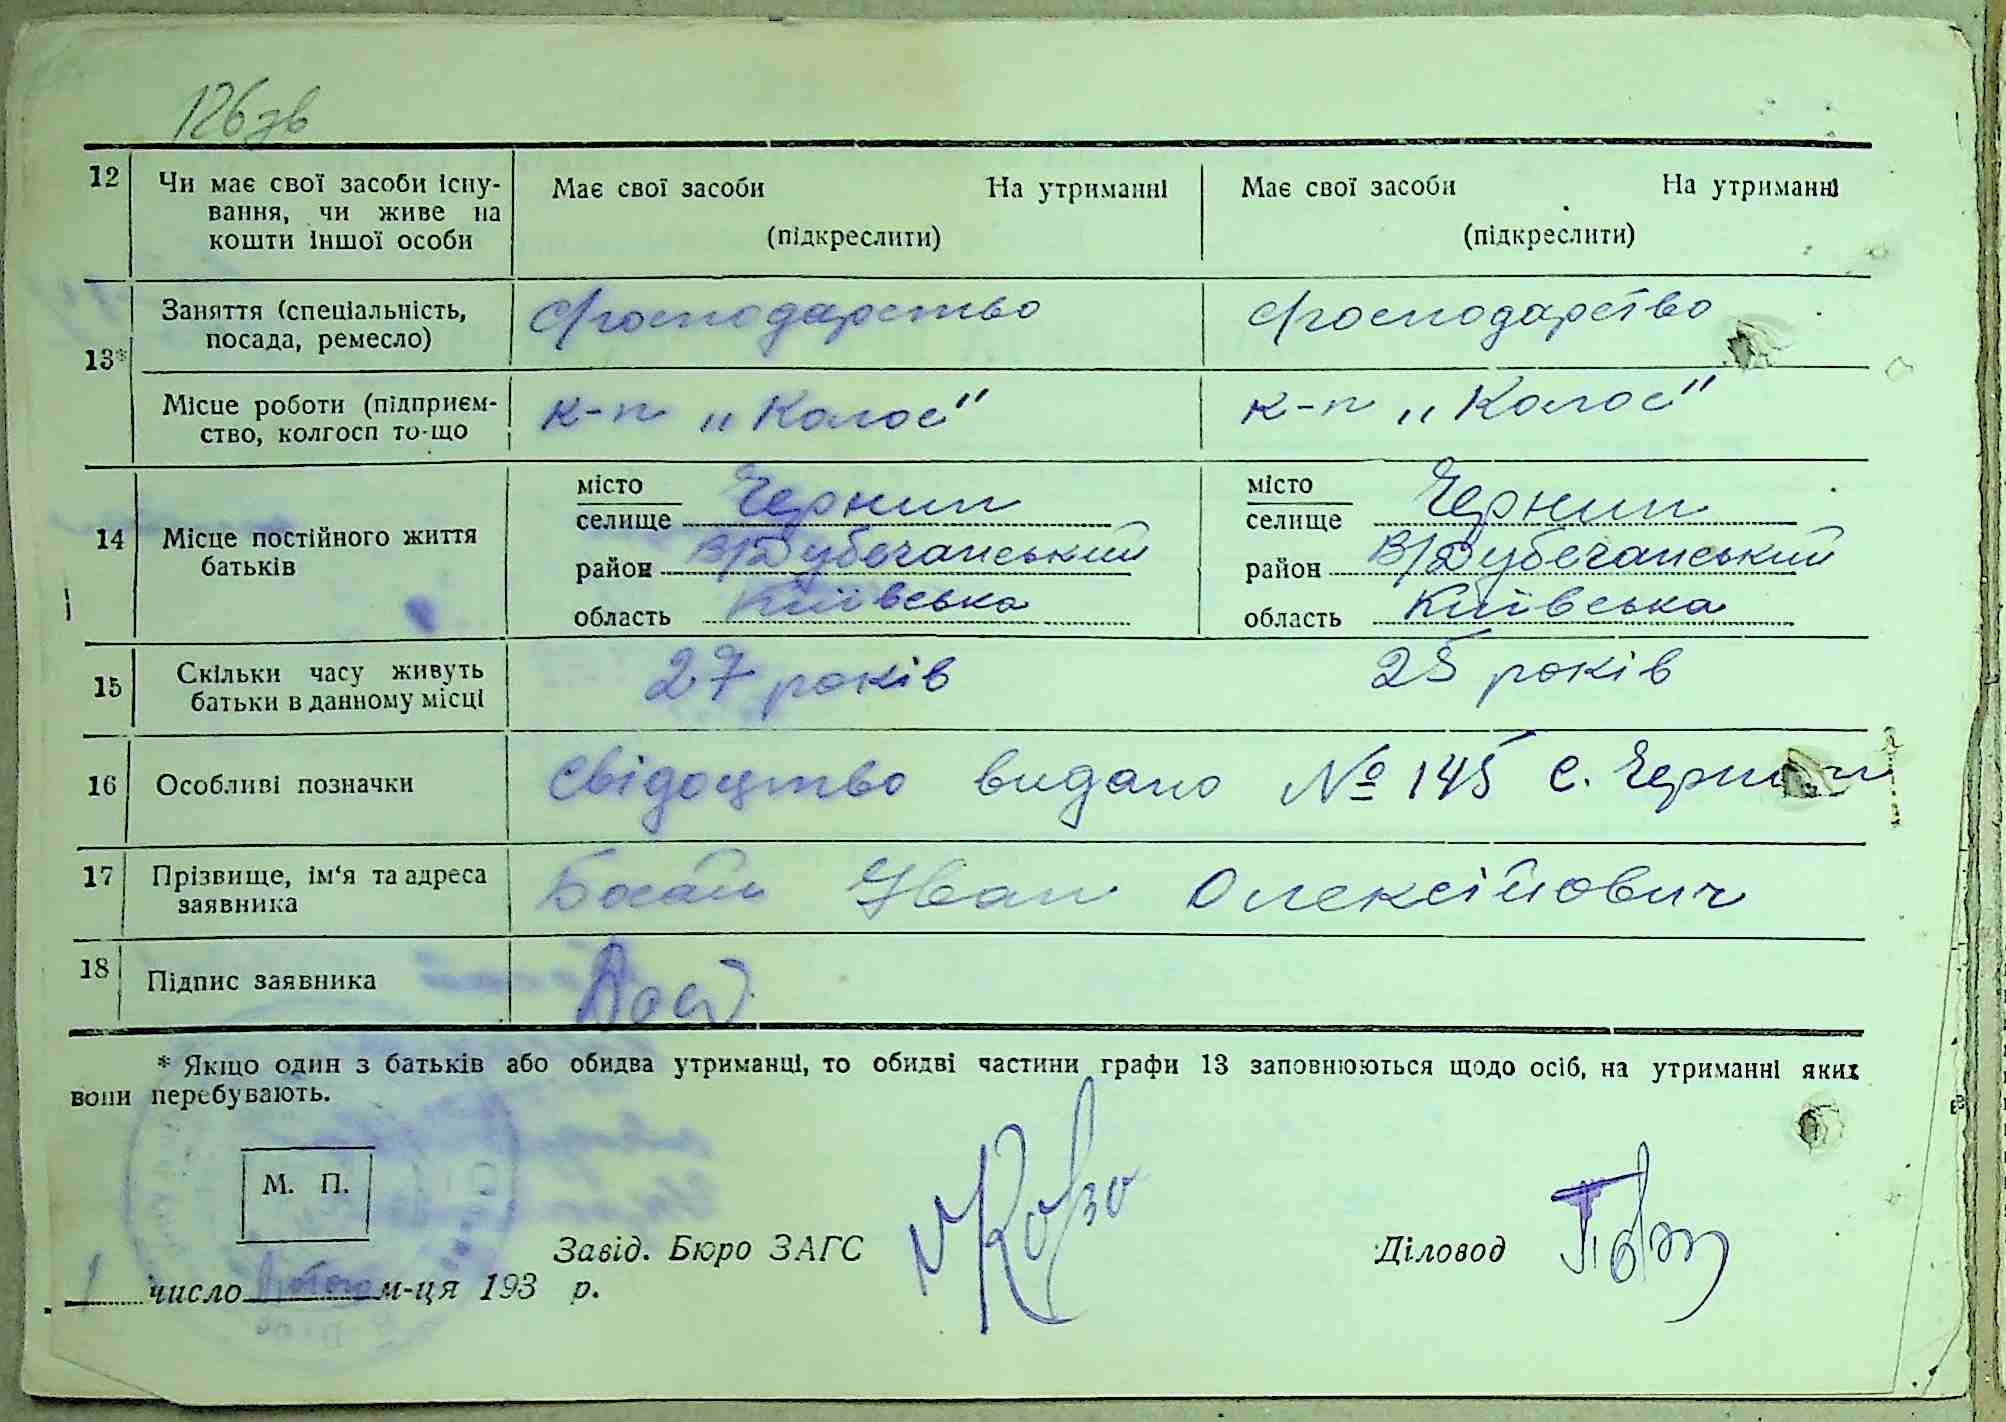 126зв
12
Чи має свої засоби існу-
вання, чи живе на
кошти іншої особи
Має свої засоби На утриманні
(підкреслити)
Має свої засоби На утриманні
(підкреслити)
13*
Заняття (спеціальність,
посада, ремесло)
с/господарство
с/господарство
Місце роботи (підприєм-
ство, колгосп то-що
к-п „Колос"
к-п „Колос"
14
Місце постійного життя
батьків
місто
селище Чернин
район В/Дубечанський
область Київська
місто
селище Чернин
район В/Дубечанський
область Київська
15
Скільки часу живуть
батьки в данному місці
27 років
25 років
16
Особливі позначки
Свідоцтво видано № 145 с. Чернин
17
Прізвище, ім'я та адреса
заявника
Босай Иван Олексійович
18
Підпис заявника
* Якщо один з батьків або обидва утриманці, то обидві частини графи 13 заповнюються щодо осіб, на утриманні яких
вони перебувають.
М. П.
Завід. Бюро ЗАГС
Діловод
1 число Лютого м-ця 193 р.